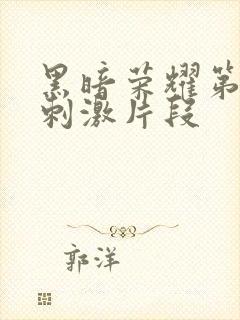 黑暗荣耀第
刺激片段
郭洋